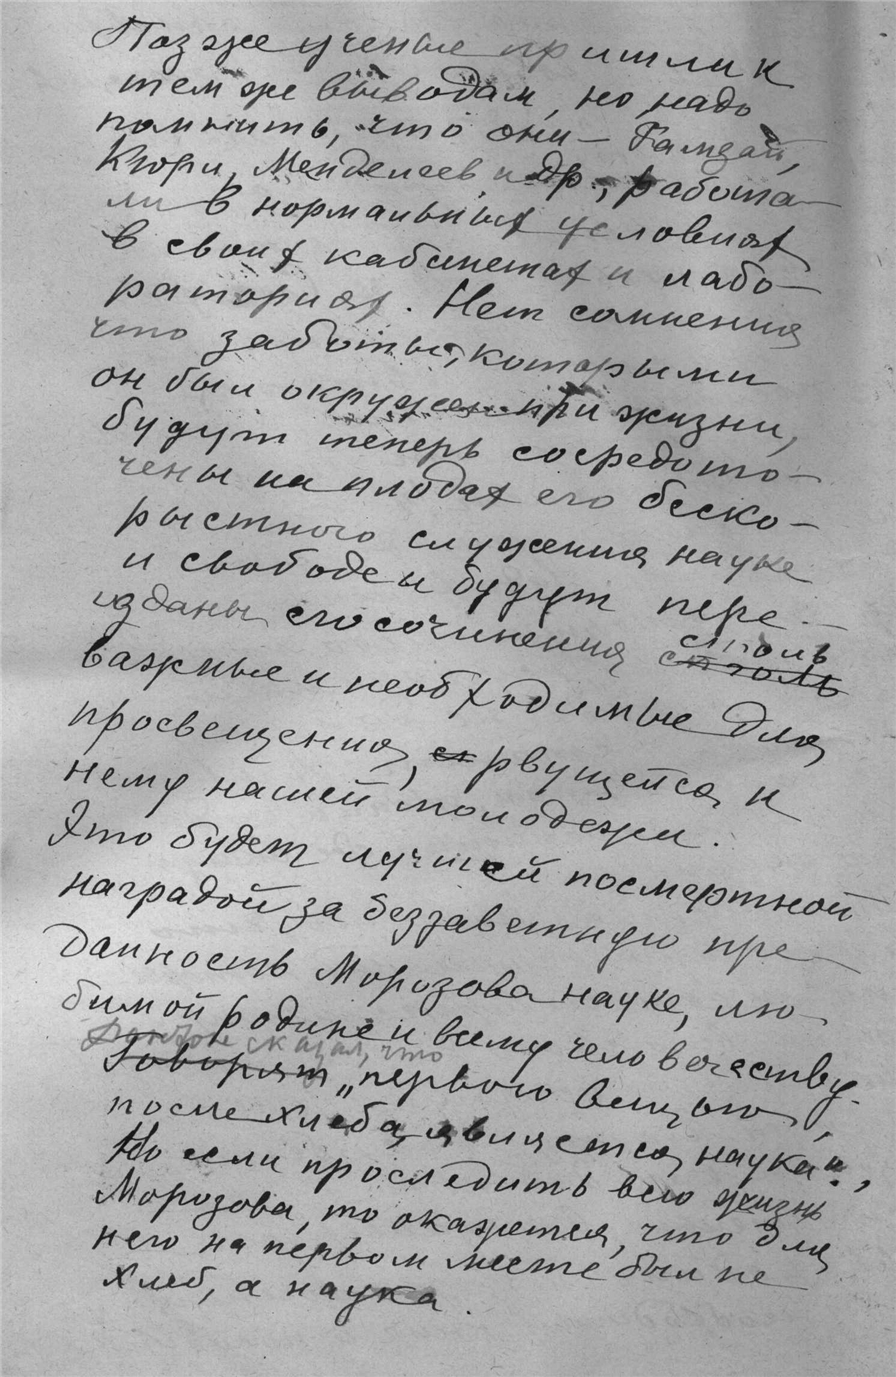 Позже ученые пришли к
тем же выводам, но надо
помнить, что они – Рамзай,
Кюри, Менделеев и др., работа-
ли в нормальных условиях
в своих кабинетах и лабо-
раториях. Нет сомнения
что заботы, которыми
он был окружен при жизни,
будут теперь сосредото-
чены на плодах его беско-
рыстного служения науке
и свободе и будут пере-
изданы его сочинения столь
столь
важные и необходимые для
просвещения, рвущейся к
нему нашей молодежи.
Это будет лучшей посмертной
наградой за беззаветную пре-
данность Морозова науке, лю-
бимой родине и всему человечеству.
Дантон сказал, что
Говорят „первою вещью,
после хлеба, является наука",
Но если проследить всю жизнь
Морозова, то окажется, что для
него на первом месте был не
хлеб, а наука.